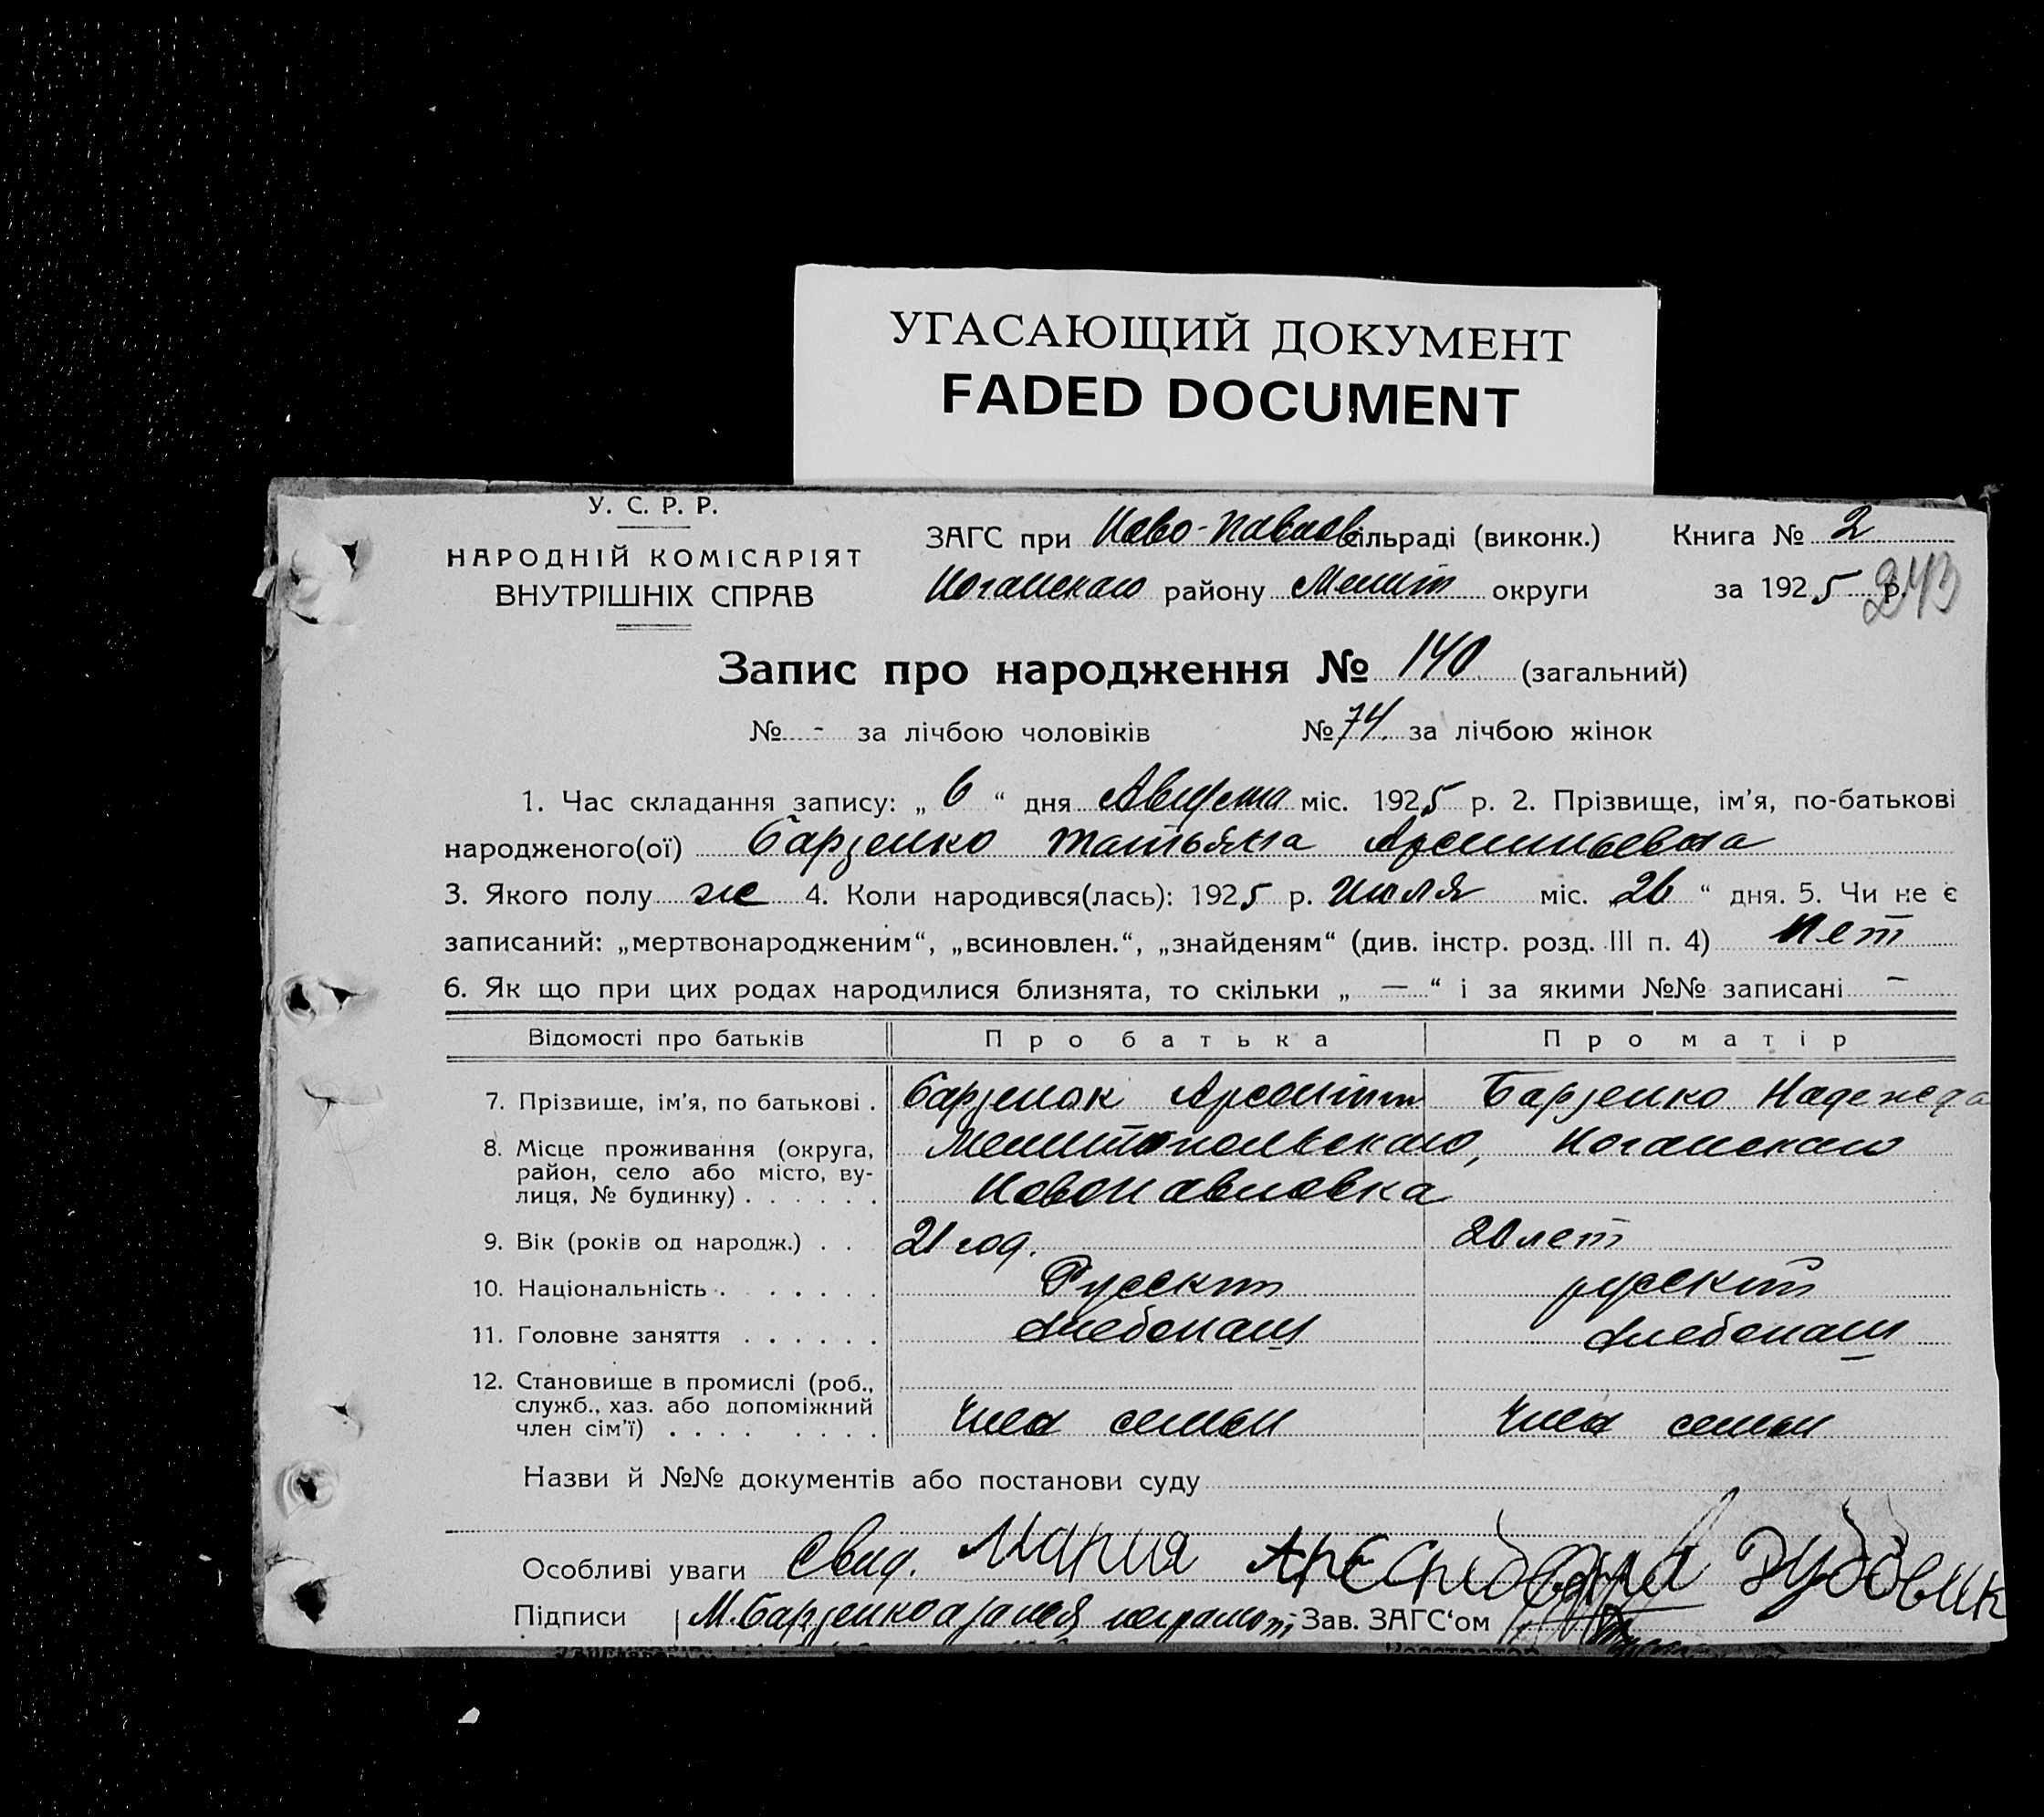 УГАСАЮЩИЙ ДОКУМЕНТ
FADED DOCUMENT
У. С. Р. Р.
НАРОДНІЙ КОМІСАРІЯТ
ВНУТРІШНІХ СПРАВ
ЗАГС при Ново-Павлов сільраді (виконк.)
Ногайскаго району Мелит округи
Книга № 2
за 1925 р.
243
Запис про народження № 140 (загальний)
№ - за лічбою чоловіків № 74. за лічбою жінок
1. Час складання запису: „ 6 “ дня Августа міс. 1925 р. 2. Прізвище, ім’я, по-батькові
народженого(ої) Барзенко Татьяна Арсентьевна
3. Якого полу же 4. Коли народився(лась): 1925 р. Июля міс. „26 “ дня. 5. Чи не є
записаний: „мертвонародженим“, „всиновлен.“, „знайденям“ (див. інстр. розд. III п. 4) Нет
6. Як що при цих родах народилися близнята, то скільки „ — “ і за якими №№ записані —
Відомості про батьків Про батька Про матір
7. Прізвище, ім’я, по батькові . Барзенок Арсентий Барзенко Надежда
8. Місце проживання (округа, район, село або місто, ву-лиця, № будинку) . . . . . . Мелитопольскаго, Ногайскаго
Новопавловка
9. Вік (років од народж.) . . 21 год. 20 лет
10. Національність . . . . . . Русский русский
11. Головне заняття . . . . . . Хлебопаш Хлебопаш
12. Становище в промислі (роб., служб., хаз. або допоміжний член сім’ї) . . . . . . . . Член семьи Член семьи
Назви й №№ документів або постанови суду
Особливі уваги Свид. Мария Дудовик
Підписи М. Барзенко неграмот Зав. ЗАГС‘ом